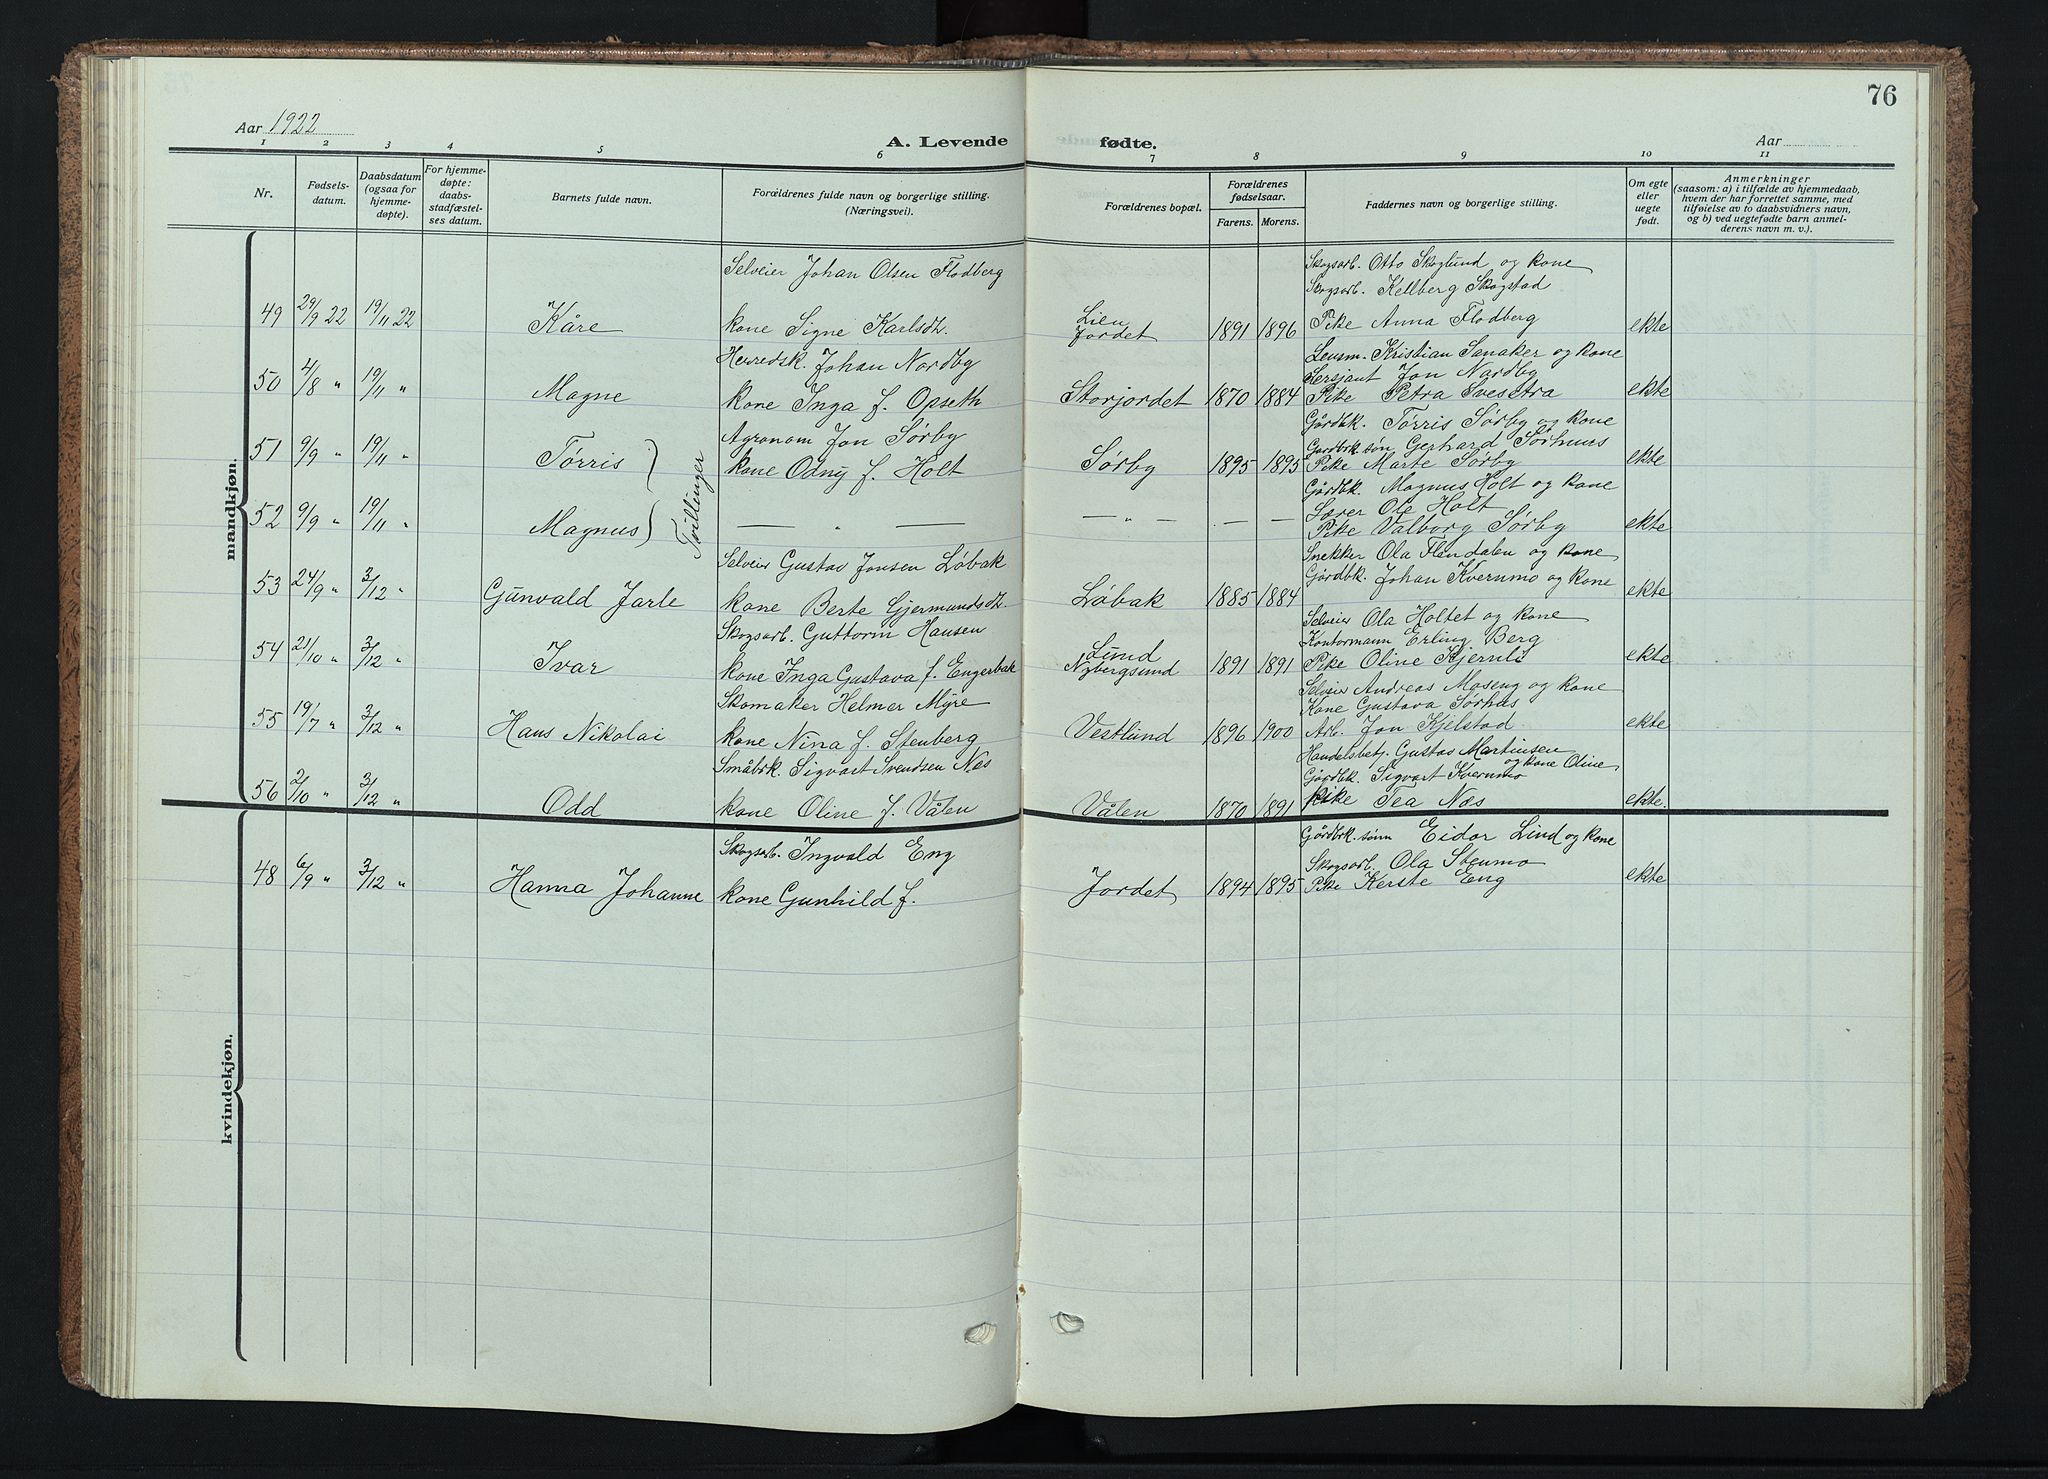 76
Aar 1922
A. Levende fødte.
Aar
1 2 3 4 5 6 7 8 9 10 11
Nr.
Fødsels-
datum.
Daabsdatum
(ogsaa for
hjemme-
døpte).
For hjemme-
døpte:
daabs-
stadfæstel-
ses datum.
Barnets fulde navn.
Forældrenes fulde navn og borgerlige stilling.
(Næringsvei).
Forældrenes bopæl.
Forældrenes
fødselsaar.
Farens. Morens.
Faddernes navn og borgerlige stilling.
Om egte
eller
uegte
født.
Anmerkninger
(saasom: a) i tilfælde av hjemmedaab,
hvem der har forrettet samme, med
tilføielse av to daabsvidners navn,
og b) ved uegtefødte barn anmel-
derens navn m. v.).
mandkjøn.
Selveier Johan Olsen Flodberg
Skogsarb. Otto Skoglund og kone
Skogsarb. Kellberg Skogstad
49 29/9 22 19/11 22 Kåre kone Signe Karlsdt. Lien Jordet 1891 1896 Pike Anna Flodberg ekte
Herredsk. Johan Nordby
Lensm. Kristian Sanaker og kone
Sersjant Jon Nordby
50 4/8 " 19/11 " Magne kone Inga f. Opseth Storjordet 1870 1884 Pike Petra Svesetra ekte
Agronom Jon Sørby
Gårdbk. Tørris Sørby og kone
Gardbrk. søn Gerhard Sørhuus
51 9/9 " 19/11 " Tørris kone Odny f. Holt Sørby 1895 1895 Pike Marte Sørby ekte
Tvillinger
Gårdbk. Magnus Holt og kone
Lærer Ole Holt
52 9/9 " 19/11 " Magnus — " — — " — — — Pike Valborg Sørby ekte
Selveier Gustav Jonsen Løbak
Snekker Ola Flendalen og kone
Gårdbk. Johan Kvernmo og kone
53 24/9 " 3/12 " Gunvald Jarle kone Berte Gjermundsdt. Løbak 1885 1884 ekte
Skogsarb. Guttorm Hansen
Selveier Ola Holtet og kone
Kontormann Erling Berg
54 21/10 " 3/12 " Ivar kone Inga Gustava f. Engerbak Lund Nybergsund 1891 1891 Pike Oline Kjernli ekte
Skomaker Helmer Myre
Selveier Andreas Moseng og kone
Kone Gustava Sørhus
55 19/7 " 3/12 " Hans Nikolai kone Nina f. Stenberg Vestlund 1896 1900 Arb. Jon Kjelstad ekte
Småbrk. Sigvart Svendsen Næs
Handelsbetj. Gustav Martinsen
og kone Oline,
Gårdbk. Sigvart Kvernmo
56 2/10 " 3/12 " Odd kone Oline f. Vålen Vålen 1870 1891 Pike Tea Næs ekte.
kvindekjøn.
Skogsarb. Ingvald Eng
Gårdbrk. sønn Eidar Lind og kone
Skogsarb. Ola Stenmo
48 6/9 " 3/12 " Hanna Johanne kone Gunhild f. Jordet 1894 1895 Pike Kerste Eng ekte